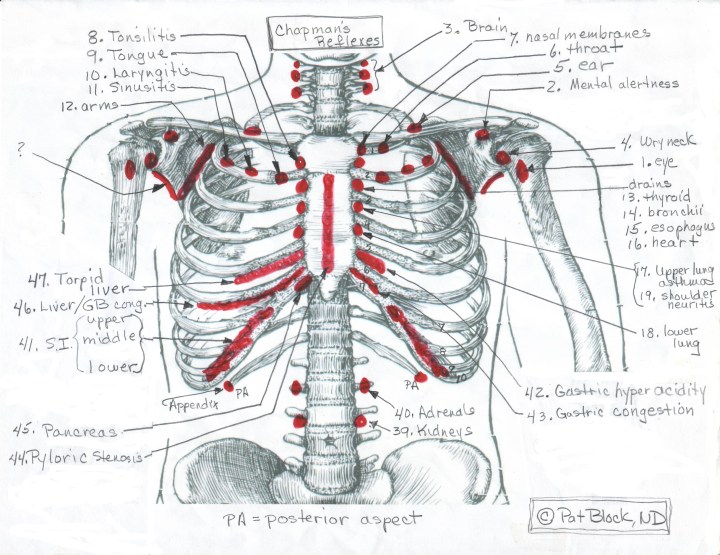 Chapman's
Reflexes
8. Tonsilitis
9. Tongue
10. Laryngitis
11. Sinusitis
12. arms
?
3. Brain
7. nasal membranes
6. throat
5. ear
2. Mental alertness
4. Wry neck
1. eye
drains
13. thyroid
14. bronchii
15. esophagus
16. heart
17. Upper lung
asthma
19. shoulder
neuritis
18. lower
lung
47. Torpid
liver
46. Liver/GB cong.
41. S.I.
upper
middle
lower
Appendix
PA
PA
45. Pancreas
44. Pyloric Stenosis
40. Adrenals
39. Kidneys
42. Gastric hyper acidity
43. Gastric congestion
PA = posterior aspect
© Pat Block, ND